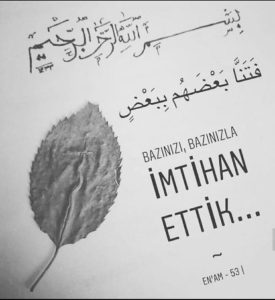 بِسْمِ اللّٰهِ الرَّحْمٰنِ الرَّحِيْمِ
فَتَنَّا بَعْضَهُم بِبَعْضٍ
BAZINIZI, BAZINIZLA
İMTİHAN
ETTİK...
~
EN'AM - 53 |